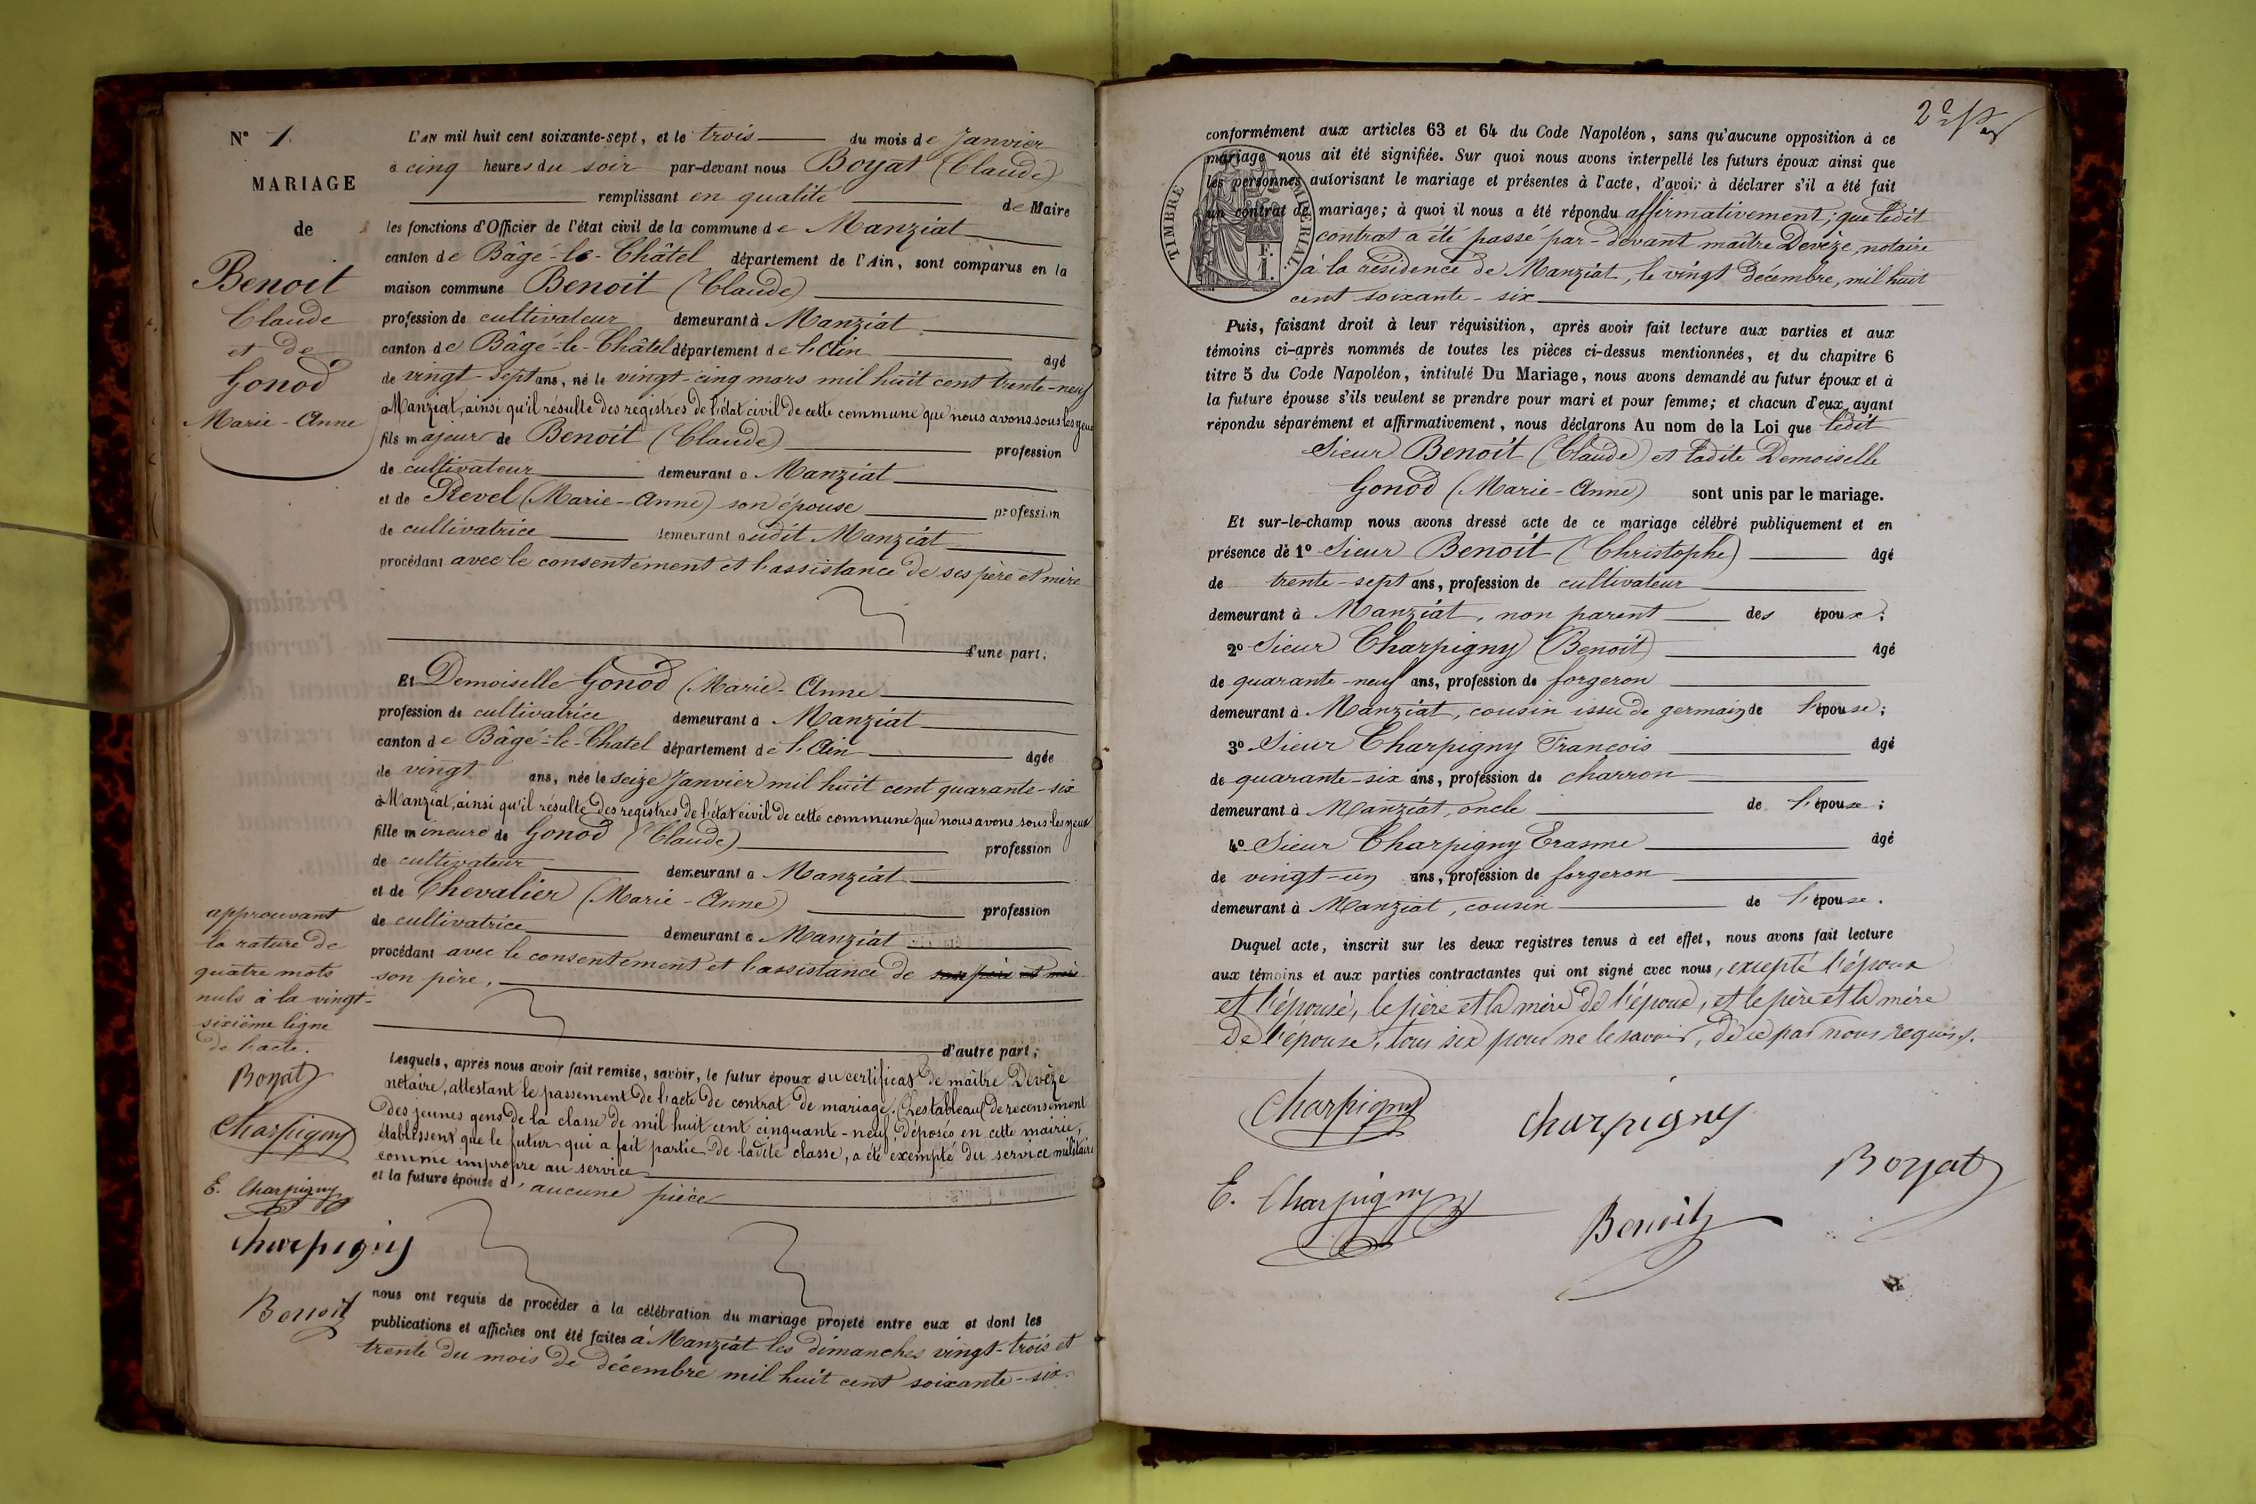 N° 1.
MARIAGE
de
Benoit
Claude
et de
Gonod
Marie-Anne
approuvant
la rature de
quatre mots
nuls à la vingt-
sixième ligne
de l'acte.
Boyat
Charpigny
E. Charpigny
Charpigny
Benoit
L'AN mil huit cent soixante-sept, et le trois du mois de Janvier
à cinq heures du soir par-devant nous Boyat (Claude)
remplissant en qualité de Maire
les fonctions d'Officier de l'état civil de la commune de Manziat
canton de Bâgé-le-Châtel département de l'Ain, sont comparus en la
maison commune Benoit (Claude)
profession de cultivateur demeurant à Manziat
canton de Bâgé-le-Châtel département de l'Ain âgé
de vingt-sept ans, né le vingt-cinq mars mil huit cent trente-neuf
à Manziat, ainsi qu'il résulte des registres de l'état civil de cette commune que nous avons sous les yeux
fils majeur de Benoit (Claude) profession
de cultivateur demeurant à Manziat
et de Revel (Marie-Anne) son épouse profession
de cultivatrice demeurant audit Manziat
procédant avec le consentement et l'assistance de ses père et mère
d'une part.
Et Demoiselle Gonod (Marie-Anne
profession de cultivatrice demeurant à Manziat
canton de Bâgé-le-Chatel département de l'Ain âgée
de vingt ans, née le seize Janvier mil huit cent quarante-six
à Manziat, ainsi qu'il résulte des registres de l'état civil de cette commune que nous avons sous les yeux
fille mineure de Gonod (Claude) profession
de cultivateur demeurant à Manziat
et de Chevalier (Marie-Anne) profession
de cultivatrice demeurant à Manziat
procédant avec le consentement et l'assistance de ses père et mère
son père,
d'autre part;
Lesquels, après nous avoir fait remise, savoir, le futur époux du certificat de maître Devèze
notaire, attestant le passement de l'acte de contrat de mariage. (Les tableaux de recensement
des jeunes gens de la classe de mil huit cent cinquante-neuf, déposés en cette mairie,
établissent que le futur qui a fait partie de ladite classe, a été exempté du service militaire
comme impropre au service
et la future épouse d'aucune pièce
nous ont requis de procéder à la célébration du mariage projeté entre eux et dont les
publications et affiches ont été faites à Manziat les dimanches vingt-trois et
trente du mois de décembre mil huit cent soixante-six.
conformément aux articles 63 et 64 du Code Napoléon, sans qu'aucune opposition à ce
mariage nous ait été signifiée. Sur quoi nous avons interpellé les futurs époux ainsi que
les personnes autorisant le mariage et présentes à l'acte, d'avoir à déclarer s'il a été fait
un contrat de mariage; à quoi il nous a été répondu affirmativement; que ledit
contrat a été passé par-devant maître Devèze, notaire
à la résidence de Manziat, le vingt décembre, mil huit
cent soixante-six
TIMBRE IMPÉRIAL.
Puis, faisant droit à leur réquisition, après avoir fait lecture aux parties et aux
témoins ci-après nommés de toutes les pièces ci-dessus mentionnées, et du chapitre 6
titre 5 du Code Napoléon, intitulé Du Mariage, nous avons demandé au futur époux et à
la future épouse s'ils veulent se prendre pour mari et pour femme; et chacun d'eux ayant
répondu séparément et affirmativement, nous déclarons Au nom de la Loi que ledit
Sieur Benoit (Claude) et ladite Demoiselle
Gonod (Marie-Anne) sont unis par le mariage.
Et sur-le-champ nous avons dressé acte de ce mariage célébré publiquement et en
présence de 1° Sieur Benoit (Christophe) âgé
de trente-sept ans, profession de cultivateur
demeurant à Manziat, non parent des époux;
2° Sieur Charpigny (Benoit) âgé
de quarante-neuf ans, profession de forgeron
demeurant à Manziat, cousin issu de germain de l'épouse;
3° Sieur Charpigny François âgé
de quarante-six ans, profession de charron
demeurant à Manziat, oncle de l'épouse;
4° Sieur Charpigny Erasme âgé
de vingt-un ans, profession de forgeron
demeurant à Manziat, cousin de l'épouse.
Duquel acte, inscrit sur les deux registres tenus à cet effet, nous avons fait lecture
aux témoins et aux parties contractantes qui ont signé avec nous, excepté l'époux
et l'épouse, le père et la mère de l'époux, et le père et la mère
de l'épouse, tous six pour ne le savoir, de ce par nous requis.
Charpigny Charpigny
Boyat
E. Charpigny Benoit